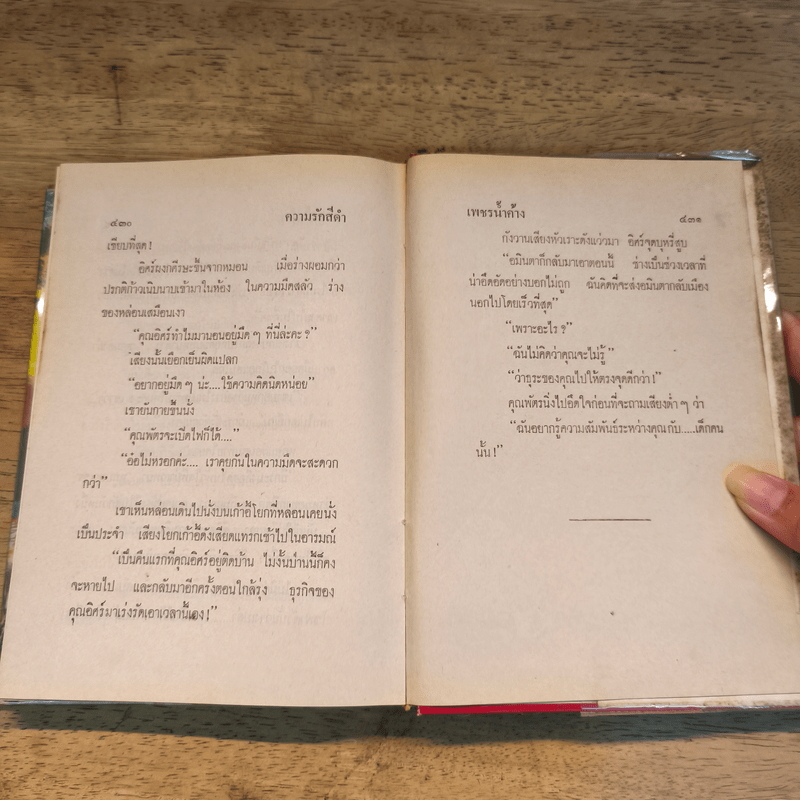 ๔๓๐ ความรักสีดำ
เชียบที่สุด !
อิศร์ผงกศีรษะขึ้นจากหมอน เมื่อร่างผอมกว่า
ปรกติก้าวเนิบนาบเข้ามาในห้อง ในความมืดสลัว ร่าง
ของหล่อนเสมือนเงา
“คุณอิศร์ทำไมมานอนอยู่มืด ๆ ที่นี่ล่ะคะ ?”
เสียงนั้นเยือกเย็นผิดแปลก
“อยากอยู่มืด ๆ น่ะ....ใช้ความคิดนิดหน่อย”
เขายันกายขึ้นนั่ง
“คุณพัตรจะเปิดไฟก็ได้....”
“อ๋อไม่หรอกค่ะ.... เราคุยกันในความมืดจะสะดวก
กว่า”
เขาเห็นหล่อนเดินไปนั่งบนเก้าอี้โยกที่หล่อนเคยนั่ง
เป็นประจำ เสียงโยกเก้าอี้ดังเสียดแทรกเข้าไปในอารมณ์
“เป็นคืนแรกที่คุณอิศร์อยู่ติดบ้าน ไม่งั้นป่านนี้ก็คง
จะหายไป และกลับมาอีกครั้งตอนใกล้รุ่ง ธุรกิจของ
คุณอิศร์มาเร่งรัดเอาเวลานี้เอง !”
เพชรน้ำค้าง ๔๓๑
กังวานเสียงหัวเราะดังแว่วมา อิศร์จุดบุหรี่สูบ
“อมินตาก็กลับมาเอาตอนนี้ ช่างเป็นช่วงเวลาที่
น่าอึดอัดอย่างบอกไม่ถูก ฉันคิดที่จะส่งอมินตากลับเมือง
นอกไปโดยเร็วที่สุด”
“เพราะอะไร ?”
“ฉันไม่คิดว่าคุณจะไม่รู้”
“ว่าธุระของคุณไปให้ตรงจุดดีกว่า !”
คุณพัตรนิ่งไปอึดใจก่อนที่จะถามเสียงต่ำ ๆ ว่า
“ฉันอยากรู้ความสัมพันธ์ระหว่างคุณกับ.....เด็กคน
นั้น !”